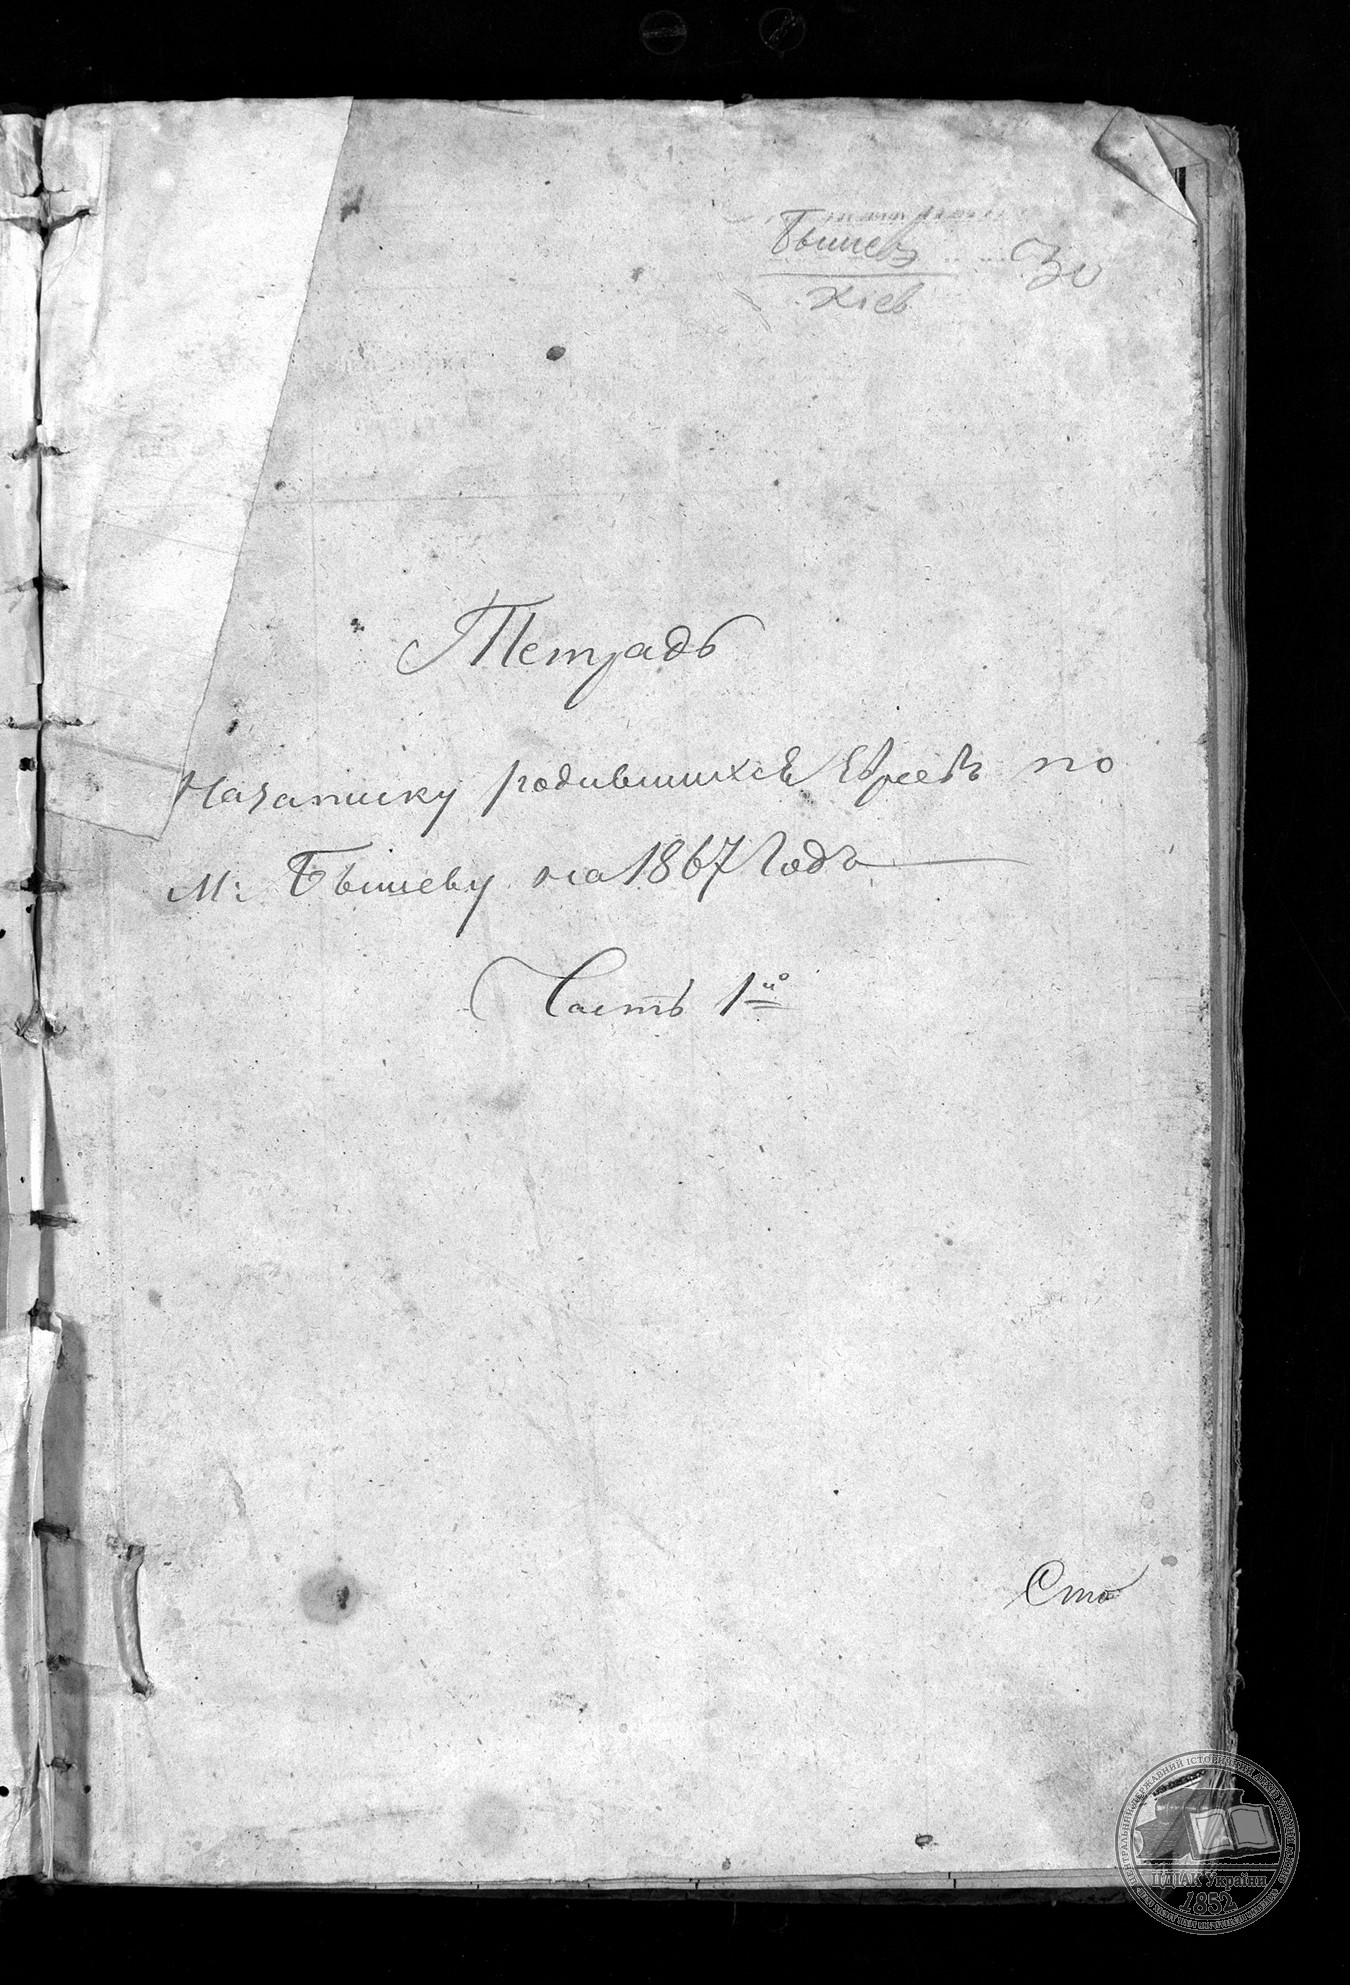 Бышев 30
Кіев
Тетрадь
Назаписку родившихся Евреевъ по
М: Бышеву на 1867 Годъ
Часть 1й
Сто
ЦДІАК України
1852